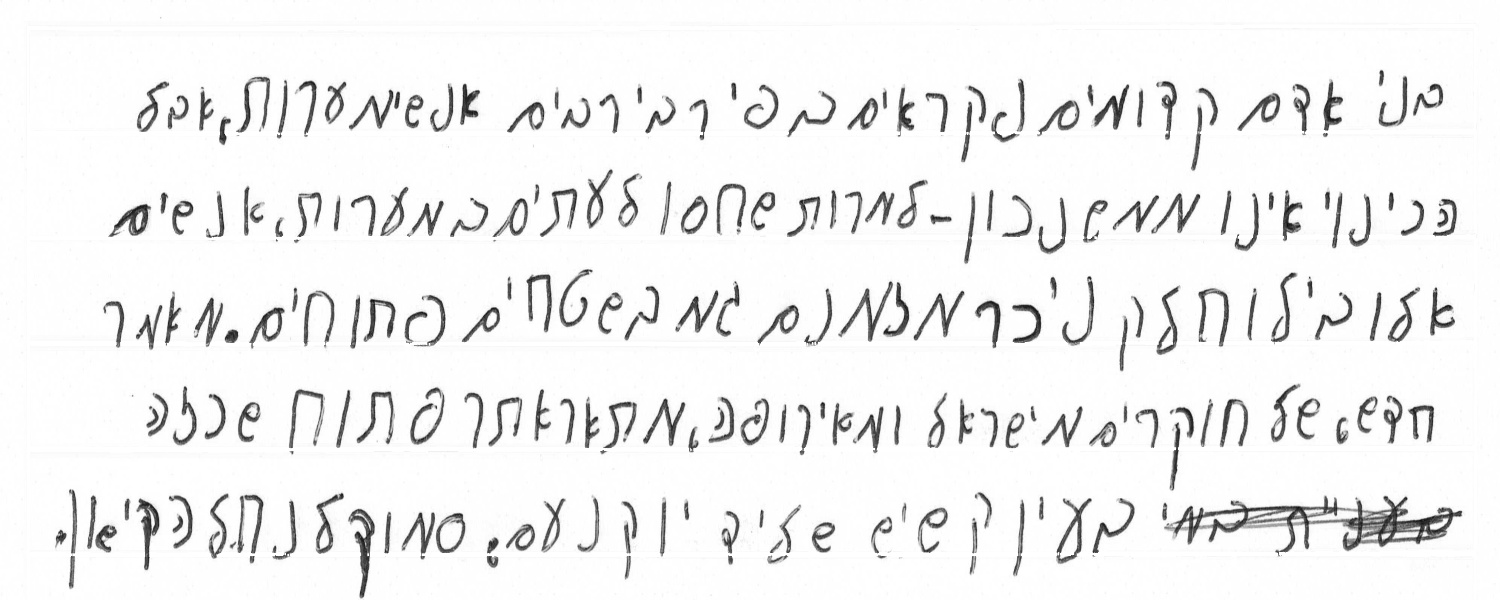 בני אדם קדומים נקראים בפי רבים רבים אנשי מערות, אבל
הכינוי אינו ממש נכון - למרות שחסו לעתים במערות, אנשים
אלו בילו חלק ניכר מזמנם גם בשטחים פתוחים. מאמר
חדש, של חוקרים מישראל ומאירופה, מתאר אתר פתוח שכזה
בעין קשיש שליד יוקנעם, סמוך לנחל הקישון.